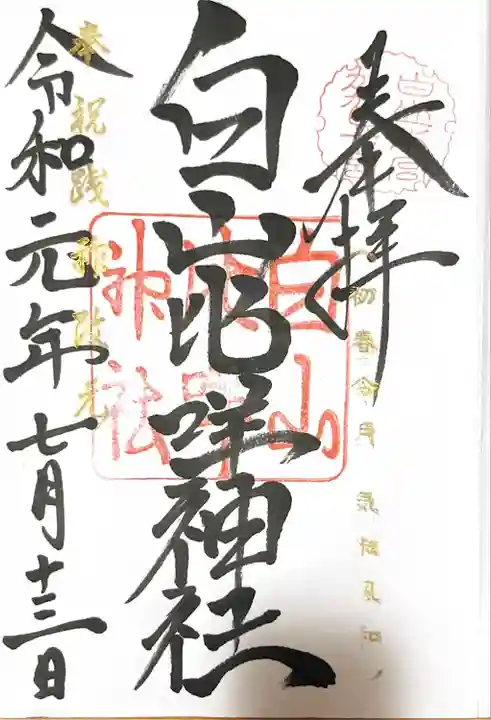 奉拝
初春令月 気淑風和
白山比咩神社
白山比咩神社
奉祝践祚改元
令和元年七月十三日